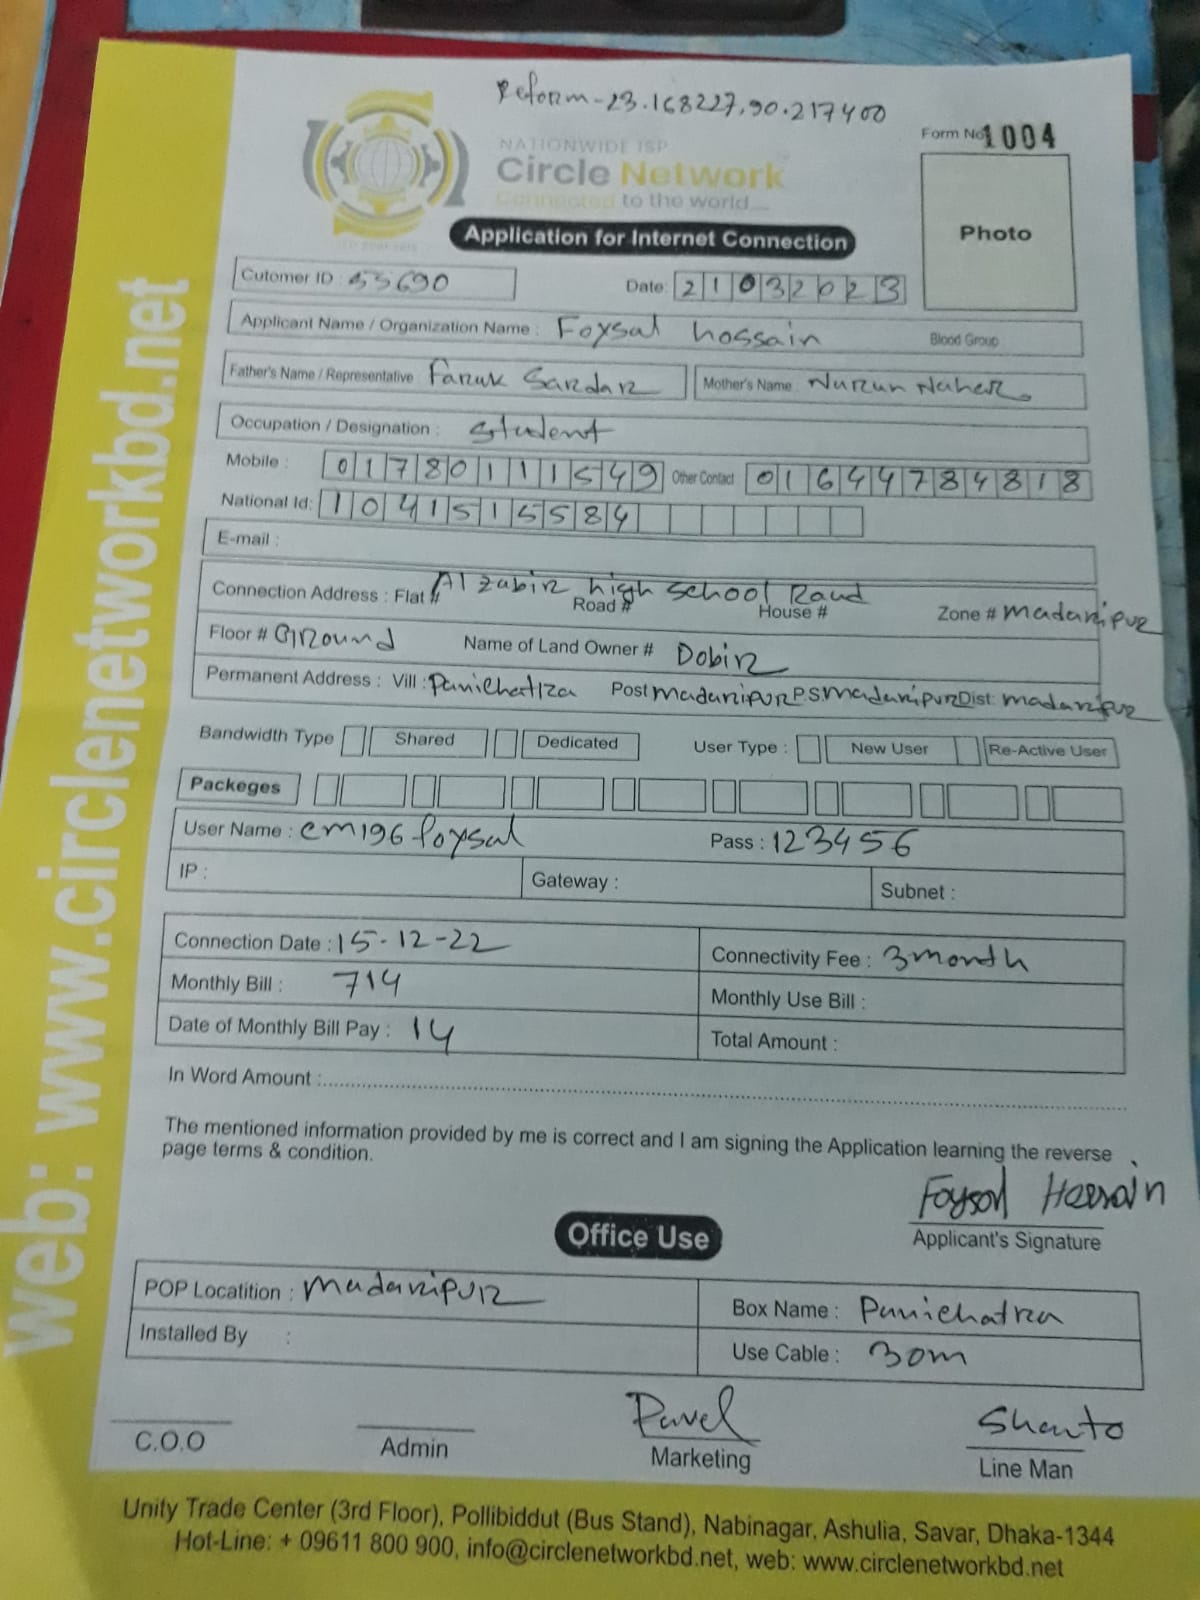 Reform-23.168227,90.217400
Form No 1004
NATIONWIDE ISP
Circle Network
Connected to the world...
Photo
Application for Internet Connection
Cutomer ID : 53690
Date: 21032023
Applicant Name / Organization Name : Foysal hossain Blood Group
Father's Name / Representative : Faruk Sardar Mother's Name : Nurun Naher.
Occupation / Designation : Student
Mobile : 01780111549 Other Contact 01644784818
National Id: 1041515584
E-mail :
Connection Address : Flat # Al zabir high school Raod Road # House # Zone # madaripur
Floor # Ground Name of Land Owner # Dobir
Permanent Address : Vill : Panichatra Post madaripur P.S. madaripur Dist: madaripur
Bandwidth Type Shared Dedicated User Type : New User Re-Active User
Packeges
User Name : cm196foysal Pass : 123456
IP : Gateway : Subnet :
Connection Date : 15-12-22 Connectivity Fee : 3month
Monthly Bill : 714 Monthly Use Bill :
Date of Monthly Bill Pay : 14 Total Amount :
In Word Amount :
The mentioned information provided by me is correct and I am signing the Application learning the reverse
page terms & condition.
Foysal Hossain
Applicant's Signature
Office Use
POP Locatition : madaripur Box Name : Panichatra
Installed By : Use Cable : 30m
Pavel Shanto
C.O.O Admin Marketing Line Man
Unity Trade Center (3rd Floor), Pollibiddut (Bus Stand), Nabinagar, Ashulia, Savar, Dhaka-1344
Hot-Line: + 09611 800 900, info@circlenetworkbd.net, web: www.circlenetworkbd.net
web: www.circlenetworkbd.net